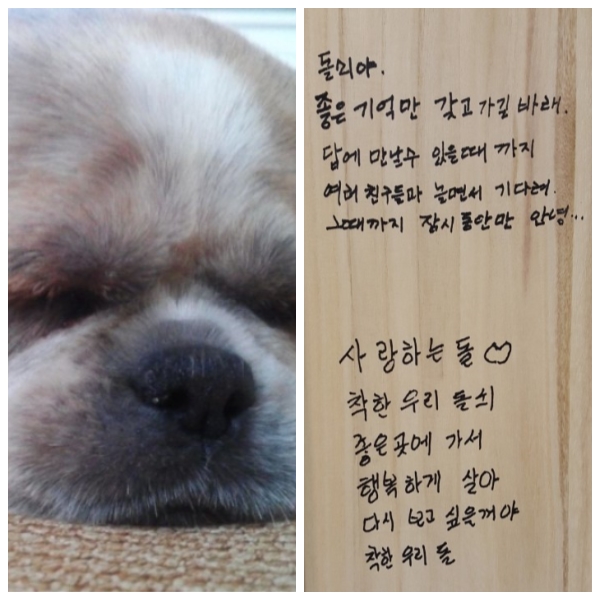 돌쇠야.
좋은 기억만 갖고가길 바래.
담에 만날수 있을때 까지
여러 친구들과 놀면서 기다려.
그때까지 잠시동안만 안녕...
사랑하는 돌♡
착한 우리 돌쇠
좋은곳에 가서
행복하게 살아
다시 보고 싶을꺼야
착한 우리 돌